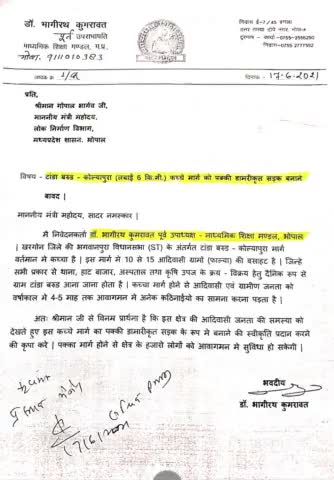 डॉ. भागीरथ कुमरावत
पूर्व उपसभापति
माध्यमिक शिक्षा मण्डल, म.प्र.
मोबा. 9111010363
निवास ई-7/45 बंगला
दिनांक - 17-6-2021
प्रति,
श्रीमान गोपाल भार्गव जी,
माननीय मंत्री महोदय,
लोक निर्माण विभाग,
मध्यप्रदेश शासन, भोपाल
विषय - टांडा बरुड - कोल्यापुरा (लबाई 6 कि.मी.) कच्चे मार्ग को पक्की डामरीकृत सड़क बनाने
बावद |
माननीय मंत्री महोदय, सादर नमस्कार |
में निवेदनकर्ता डॉ. भागीरथ कुमरावत पूर्व उपाध्यक्ष - माध्यमिक शिक्षा मण्डल, भोपाल
| खरगोन जिले की भगवानपुरा विधानसभा (ST) के अंतर्गत टांडा बरुड - कोल्यापुरा मार्ग
वर्तमान में कच्चा है | इस मार्ग में 10 से 15 आदिवासी ग्रामों (फाल्या) की बसाहट है | जिन्हें
सभी प्रकार से थाना, हाट बाजार, अस्पताल तथा कृषि उपज के क्रय - विक्रय हेतु दैनिक रूप से
ग्राम टांडा बरुड आना जाना होता है | कच्चा मार्ग होने से आदिवासी एवं ग्रामीण जनता को
वर्षाकाल में 4-5 माह तक आवागमन में अनेक कठिनाईयो का सामना करना पड़ता है |
अतः श्रीमान जी से विनम्र प्रार्थना है कि इस क्षेत्र की आदिवासी जनता की समस्या को
देखते हुए इस कच्चे मार्ग का पक्की डामरीकृत सड़क के रूप मे बनाने की स्वीकृति प्रदान करने
की कृपा करे | पक्का मार्ग होने से क्षेत्र के हजारो लोगों को आवागमन में सुविधा हो सकेगी |
भवदीय
डॉ. भागीरथ कुमरावत
17/6/2021